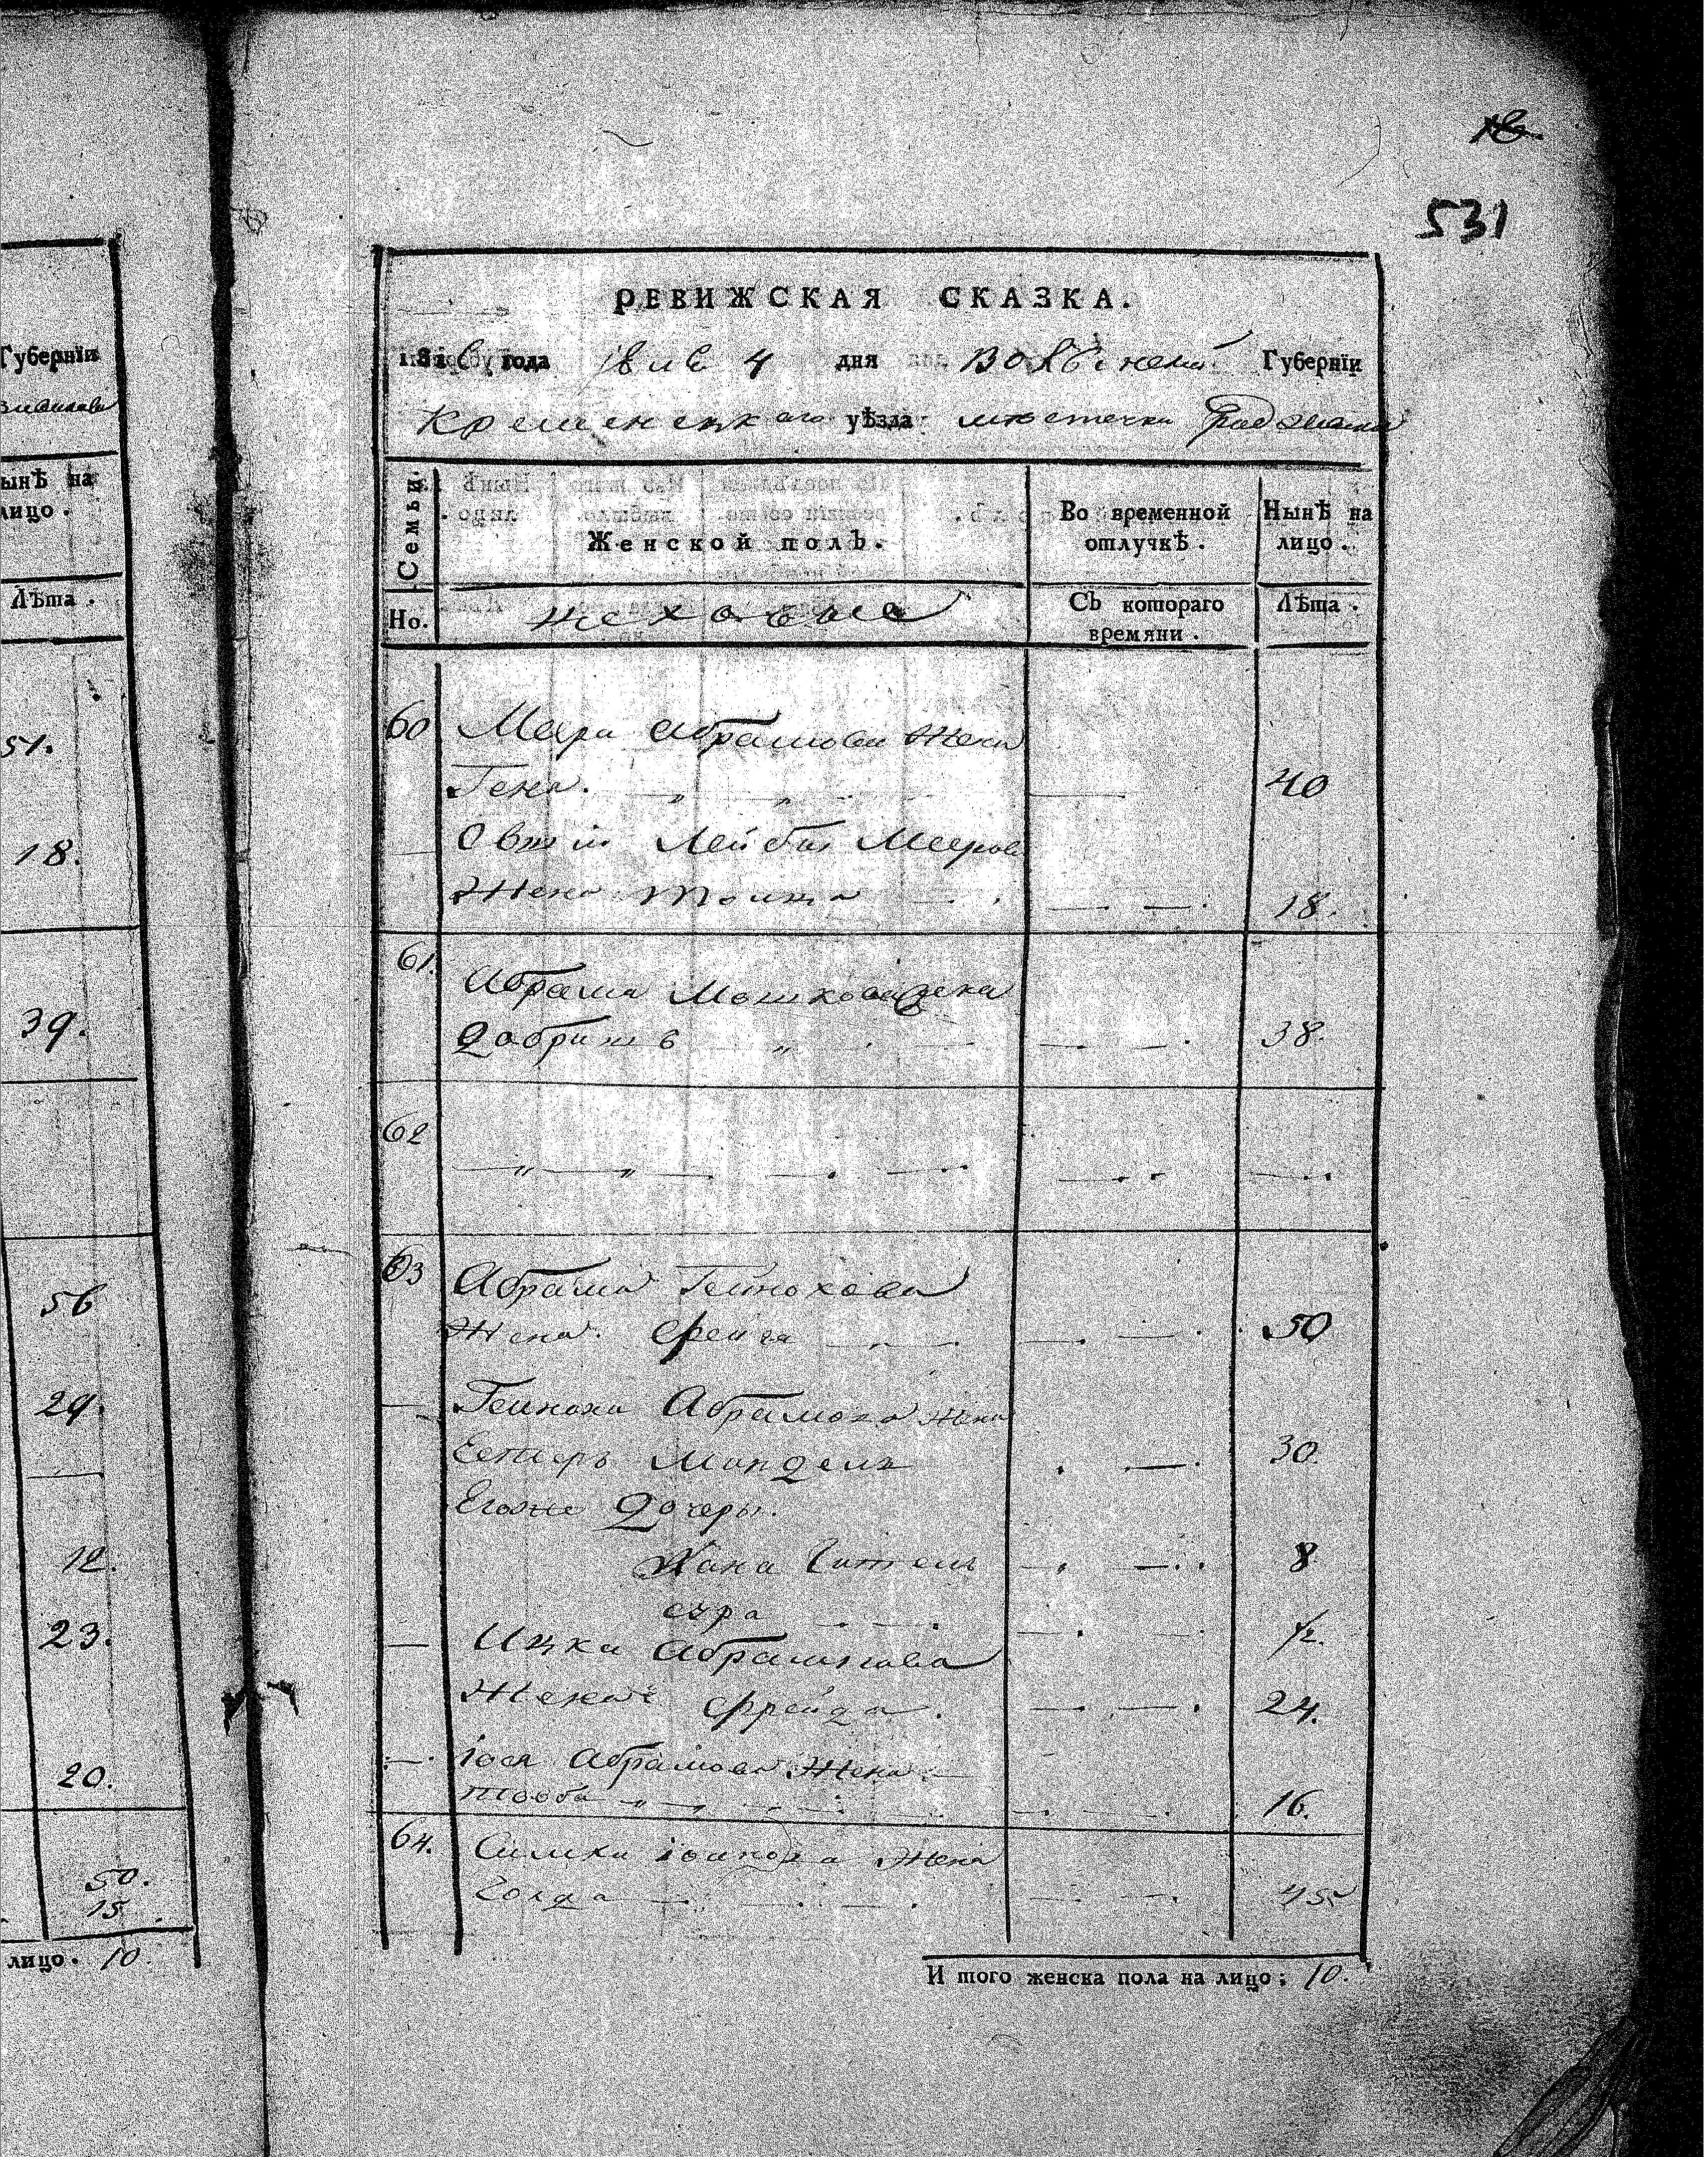 Губернїи
ынѣ на
лицо.
Лѣта.
51.
18.
39.
56
29.
12.
23.
20.
50.
15
лицо. 10.
531
РЕВИЖСКАЯ СКАЗКА.
1816 года 4 дня Губернїи
Кременецкаго уѣзда местечка
Семьи.
Женской полъ.
Во временной
отлучкѣ.
Нынѣ на
лицо.
Но.
Съ котораго
времяни.
Лѣта.
60 Меера Абрамова Жена
Гена. 40
Лейбы Меерова
Жена 18.
61. Абрама Мошкова жена
Добришъ 38.
62
63 Абрама Гейнохова
Жена Фейга 50
Гейноха Абрамова Жена
Естеръ Миндель 30.
Егоже Дочеры.
Хана Гитель 8
сура ½.
Ицка Абрамова
Жена Фрейда. 24.
Іося Абрамова Жена
Тооба 16.
64. Симхи Жена
Голда 45
И того женска пола на лицо; 10.